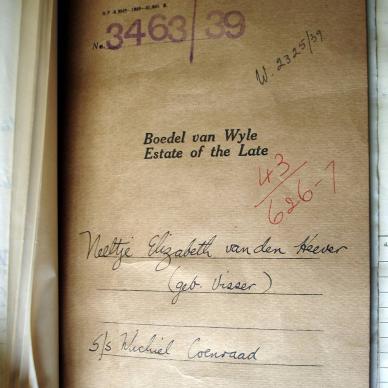 No. 3463/39
W. 2325/39
Boedel van Wyle
Estate of the Late
43/626-7
Neeltje Elizabeth van den Heever
(geb. Visser)
S/s Michiel Coenraad